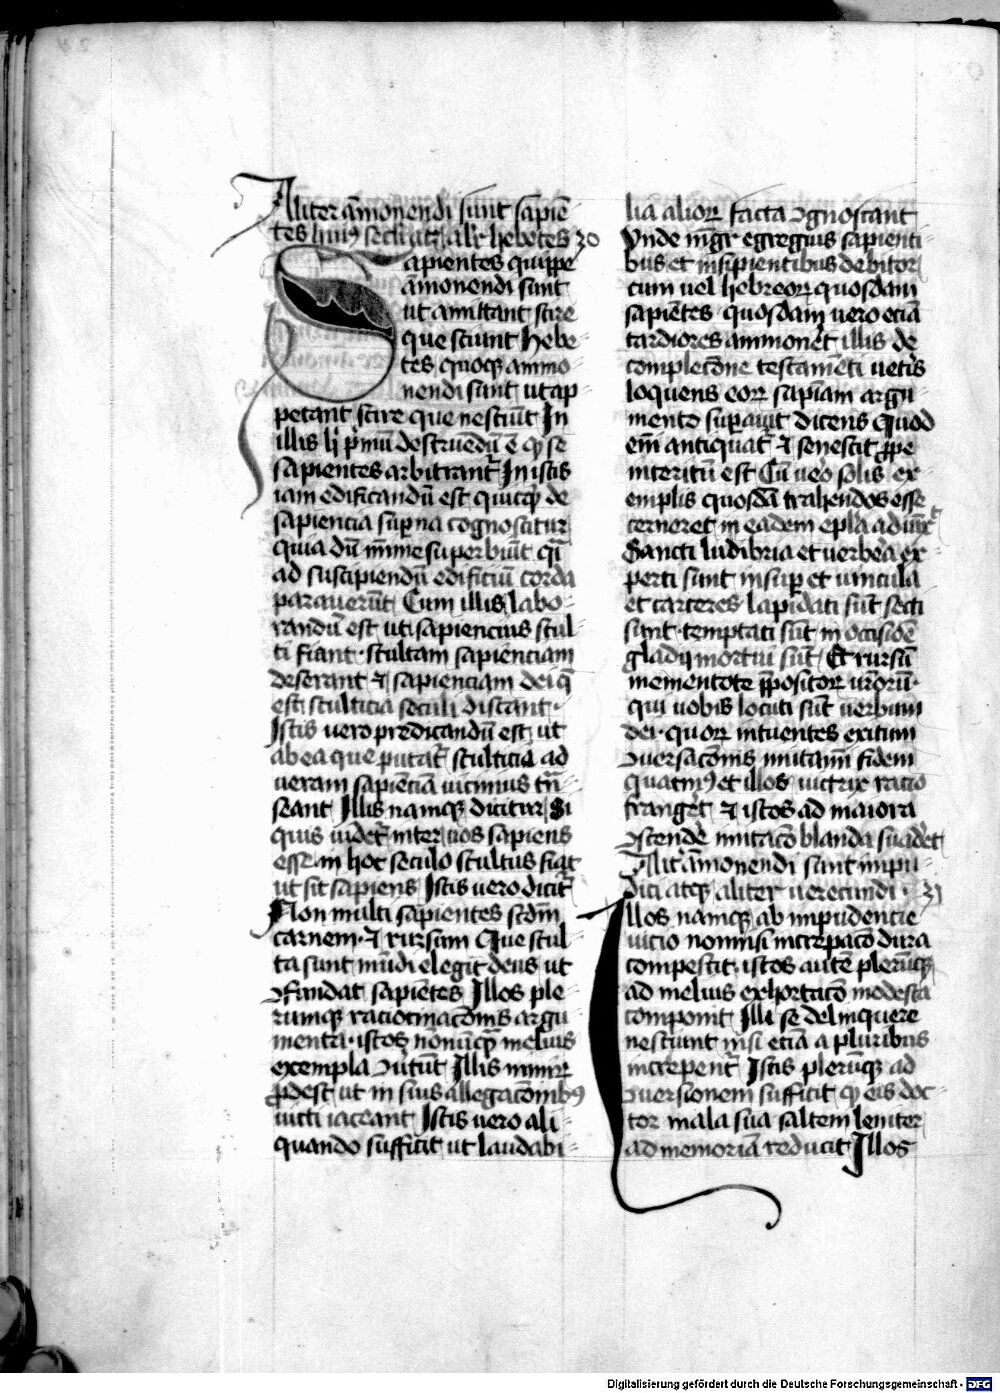 Aliter ām̄onendi sunt sapiē-
tes huiꝰ seculi atqꝫ alr̄ hebetes 30
Sapientes quippe
āmonendi sunt
ut amittant scire
que sciunt Hebe-
tes quoqꝫ ammo-
nendi sunt ut ap-
petant scire que nesciūt In
illis h̄ p̄mū destruēdū ē qꝫ se
sapientes arbitrant᷑ In istis
iam edificandū est quicqꝫ de
sapiencia sup̄na cognoscitur
quia dū mīme superbiūt q̄i
ad suscipiendū edificiū corda
parauerūt Cum illis labo-
randū est ut sapiencius stul-
ti fiant stultam sapienciam
deserant ⁊ sapienciam dei q̄
est stulticia seculi discant
Istis uero predicandū est ut
ab ea que putat᷑ stulticia ad
ueram sapiēciā uicinius trā-
seant Illis namqꝫ dicitur Si
quis uidet᷑ inter uos sapiens
esse in hoc seculo stultus fiat
ut sit sapiens Istis uero dicit᷑
Non multi sapientes scdm̄
carnem ⁊ rursum Que stul-
ta sunt mūdi elegit deus ut
ꝯfundat sapiētes Illos ple-
rumqꝫ raciocinacōnis argu-
menta istos nōnūqꝫ melius
exempla ꝯuertūt Illis nimirꝝ
ꝓdest ut in suis allegacōnibꝰ
uicti iaceant Istis uero ali-
quando sufficit ut laudabi-
lia aliorꝝ facta ꝯgnoscant
Vnde mgr̄ egregius sapienti-
bus et insipientibus debitor
cum uel hebreorꝝ quosdam
sapiētes quosdam uero etiā
tardiores ammonēt illis de
completōne testamēti uetis̄
loquens eorꝝ sapiam argu-
mento supauit dicens Quod
em̄ antiquat᷑ ⁊ senescit ꝓpe
interitū est Cū uero solis ex-
emplis quosdā trahendos esse
cerneret in eadem epla adiūx̄
Sancti ludibria et uerbera ex-
perti sunt insup̄ et uincula
et carceres lapidati sūt secti
sunt temptati sūt in occisiōe
gladij mortui sūt Et rursū
mementote p̄positorꝝ ur̄orū
qui uobis locuti sūt uerbum
dei quorꝝ intuentes exitum
ꝯuersacōnis imitam̄ fidem
quatinꝰ et illos uictrix racio
franget᷑ ⁊ istos ad maiora
ꝯscende᷑ imitacō blanda suadet᷑
Alit᷑ āmonendi sunt impu-
dici atqꝫ aliter uerecundi 31
Illos namqꝫ ab impudencie
uicio nonnisi increpacō dura
compescit istos autē plerūqꝫ
ad melius exhortacō modesta
componit Illi se delinquere
nesciunt nisi etiā a pluribus
increpent᷑ Istis plerūqꝫ ad
ꝯuersionem sufficit qꝫ eis doc-
tor mala sua saltem leniter
ad memoriā reducit Illos
Digitalisierung gefördert durch die Deutsche Forschungsgemeinschaft - DFG